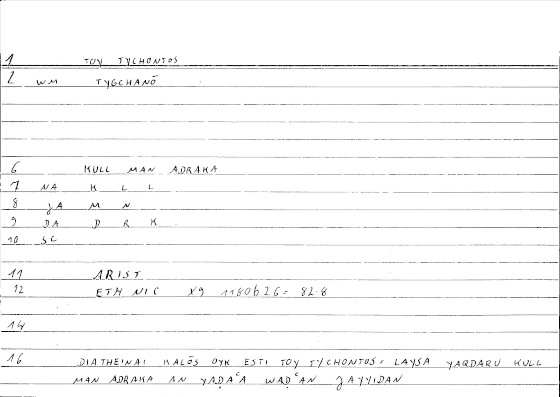 1 TOY TYCHONTOS
2 WM TYGCHANŌ
6 KULL MAN ADRAKA
7 NA K L L
8 ȷA M N
9 DA D R K
10 SC
11 ARIST
12 ETH NIC X9 1180b26= 82.8
14
16 DIATHEINAI KALŌS OYK ESTI TOY TYCHONTOS: LAYSA YAQDARU KULL
MAN ADRAKA AN YAḌAʿA WAḌʿAN ȷAYYIDAN